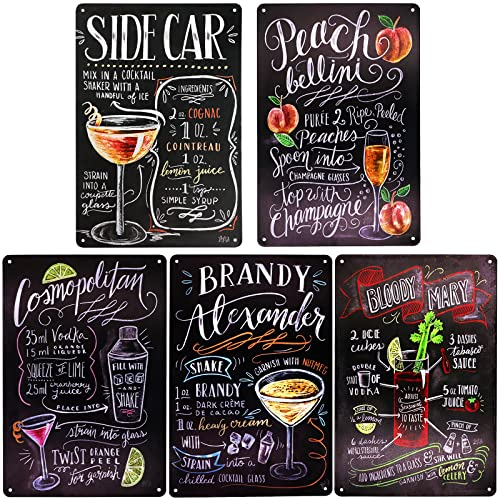 SIDE CAR
MIX IN A COCKTAIL
SHAKER WITH A
HANDFUL OF ICE
INGREDIENTS
2 OZ. COGNAC
1 OZ.
COINTREAU
1 OZ.
lemon juice
1 Tsp
SIMPLE SYRUP
STRAIN
INTO a
coupette
glass
Peach
bellini
PURÉE 2 Ripe Peeled
Peaches
Spoon into
CHAMPAGNE GLASSES
top with
Champagne
Cosmopolitan
35ml Vodka
15ml ORANGE
LIQUEUR
SQUEEZE OF LIME
25ml cranberry
juice
PLACE INTO
FILL WITH
ICE
AND
SHAKE
strain into glass
TWIST ORANGE
PEEL
for garnish
BRANDY
Alexander
SHAKE
GARNISH WITH NUTMEG
1 OZ BRANDY
1 OZ DARK CRÈME
DE CACAO
1 OZ heavy cream
WITH
STRAIN into a
chilled COCKTAIL GLASS
BLOODY MARY
2 ICE
cubes
3 DASHES
Tabasco
SAUCE
DOUBLE
SHOT OF
VODKA
5 oz TOMATO
JUICE
ADJUST
SEASONING
TO TASTE
JUICE OF
1/2 a LEMON
PINCH OF
6 dashes
WORCESTERSHIRE
SAUCE
ADD INGREDIENTS TO A GLASS & STIR WELL
GARNISH WITH Lemon &
CELERY